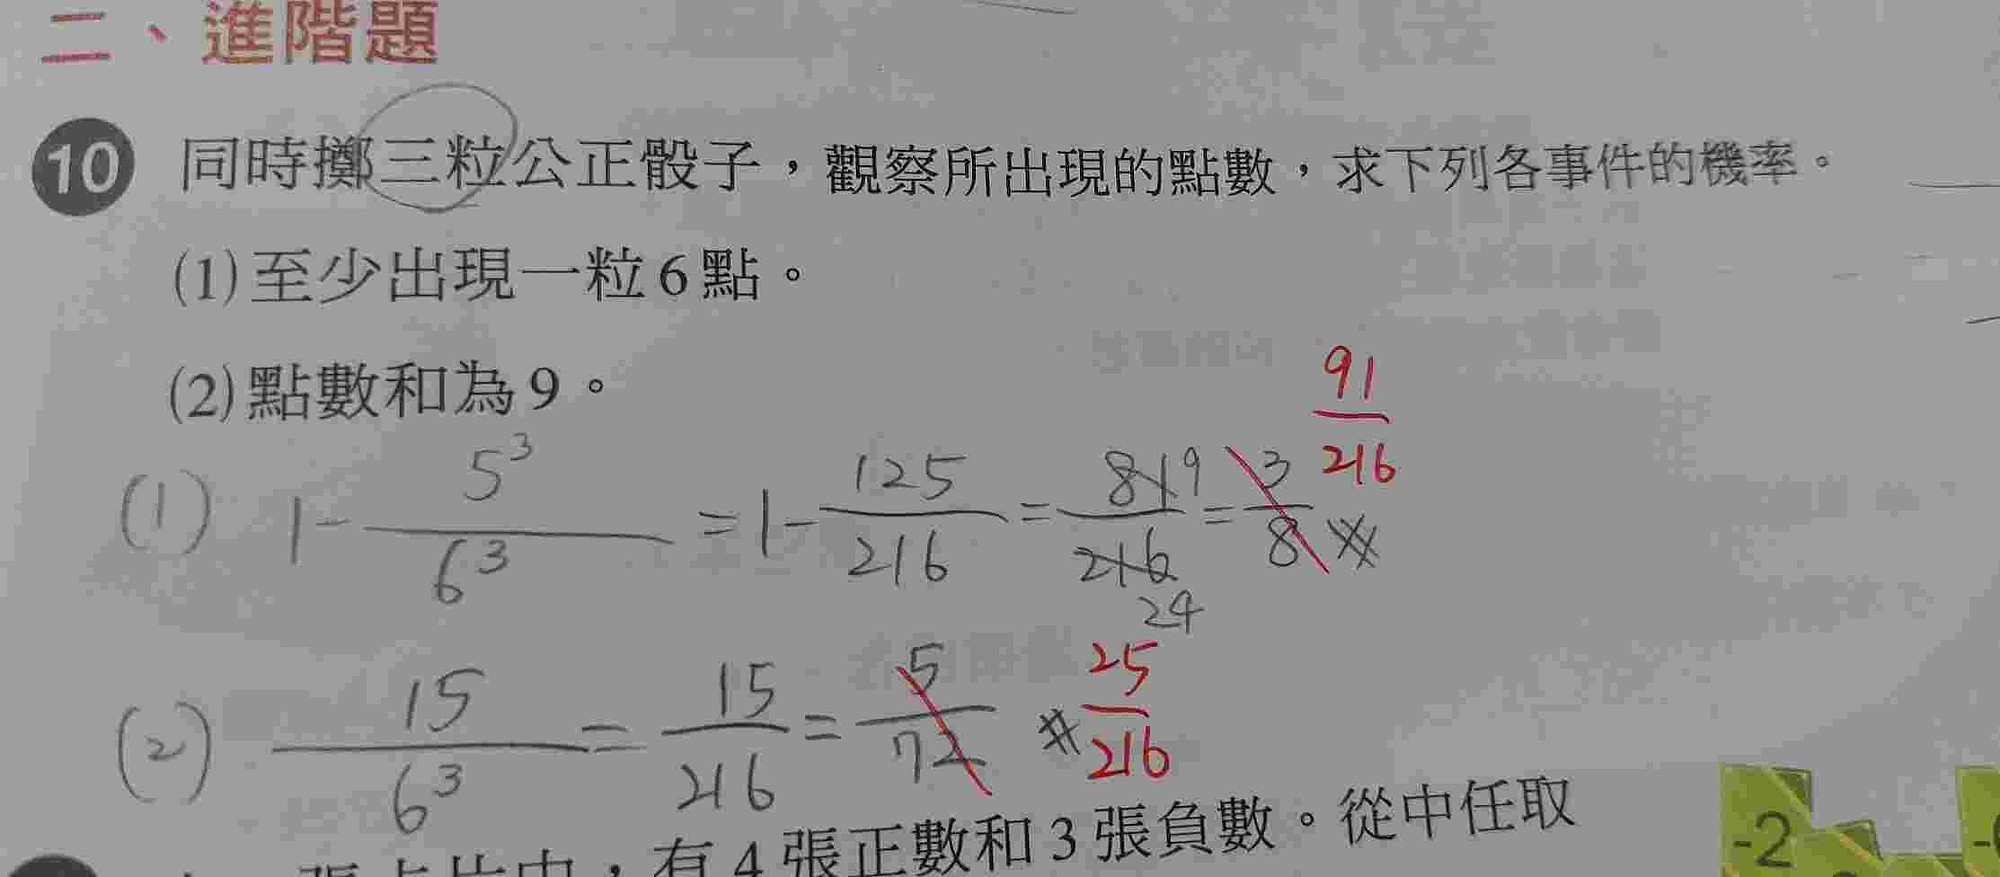 二、進階題
10 同時擲三粒公正骰子，觀察所出現的點數，求下列各事件的機率。
(1)至少出現一粒6點。
(2)點數和為9。
(1) 1 - 5³/6³ = 1 - 125/216 = 81/216 9/24 = 3/8 91/216
(2) 15/6³ = 15/216 = 5/72 25/216
張卡片中，有4張正數和3張負數。從中任取
-2